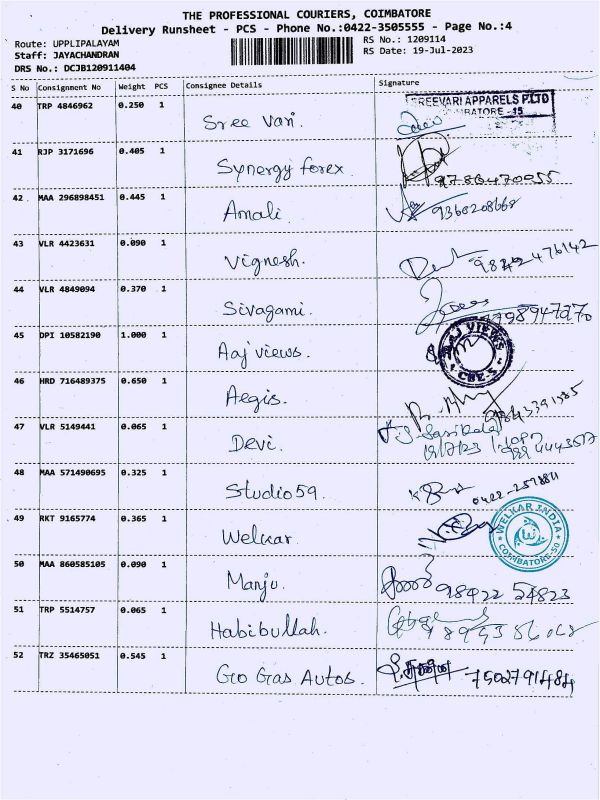 THE PROFESSIONAL COURIERS, COIMBATORE
Delivery Runsheet - PCS - Phone No.:0422-3505555 - Page No.:4
Route: UPPLIPALAYAM RS No.: 1209114
Staff: JAYACHANDRAN RS Date: 19-Jul-2023
DRS No.: DCJB120911404
S No Consignment No Weight PCS Consignee Details Signature
40 TRP 4846962 0.250 1 Sree Vari. SREEVARI APPARELS P.LTD
COIMBATORE -15
41 RJP 3171696 0.405 1 Synergy forex 9786470055
42 MAA 296898451 0.445 1 Amali 9360208668
43 VLR 4423631 0.090 1 Vignesh. 9842476142
44 VLR 4849094 0.370 1 Sivagami.
45 DPI 10582190 1.000 1 Aaj views. AAJ VIEWS CBE-5
46 HRD 716489375 0.650 1 Aegis. 9843391385
47 VLR 5149441 0.065 1 Devi. Sasikala
19/7/23
48 MAA 571490695 0.325 1 Studio 59.
49 RKT 9165774 0.365 1 Welkar. WELKAR INDIA COIMBATORE-50
50 MAA 860585105 0.090 1 Manju. 98422 54823
51 TRP 5514757 0.065 1 Habibullah.
52 TRZ 35465051 0.545 1 Go Gas Autos. 7502791484